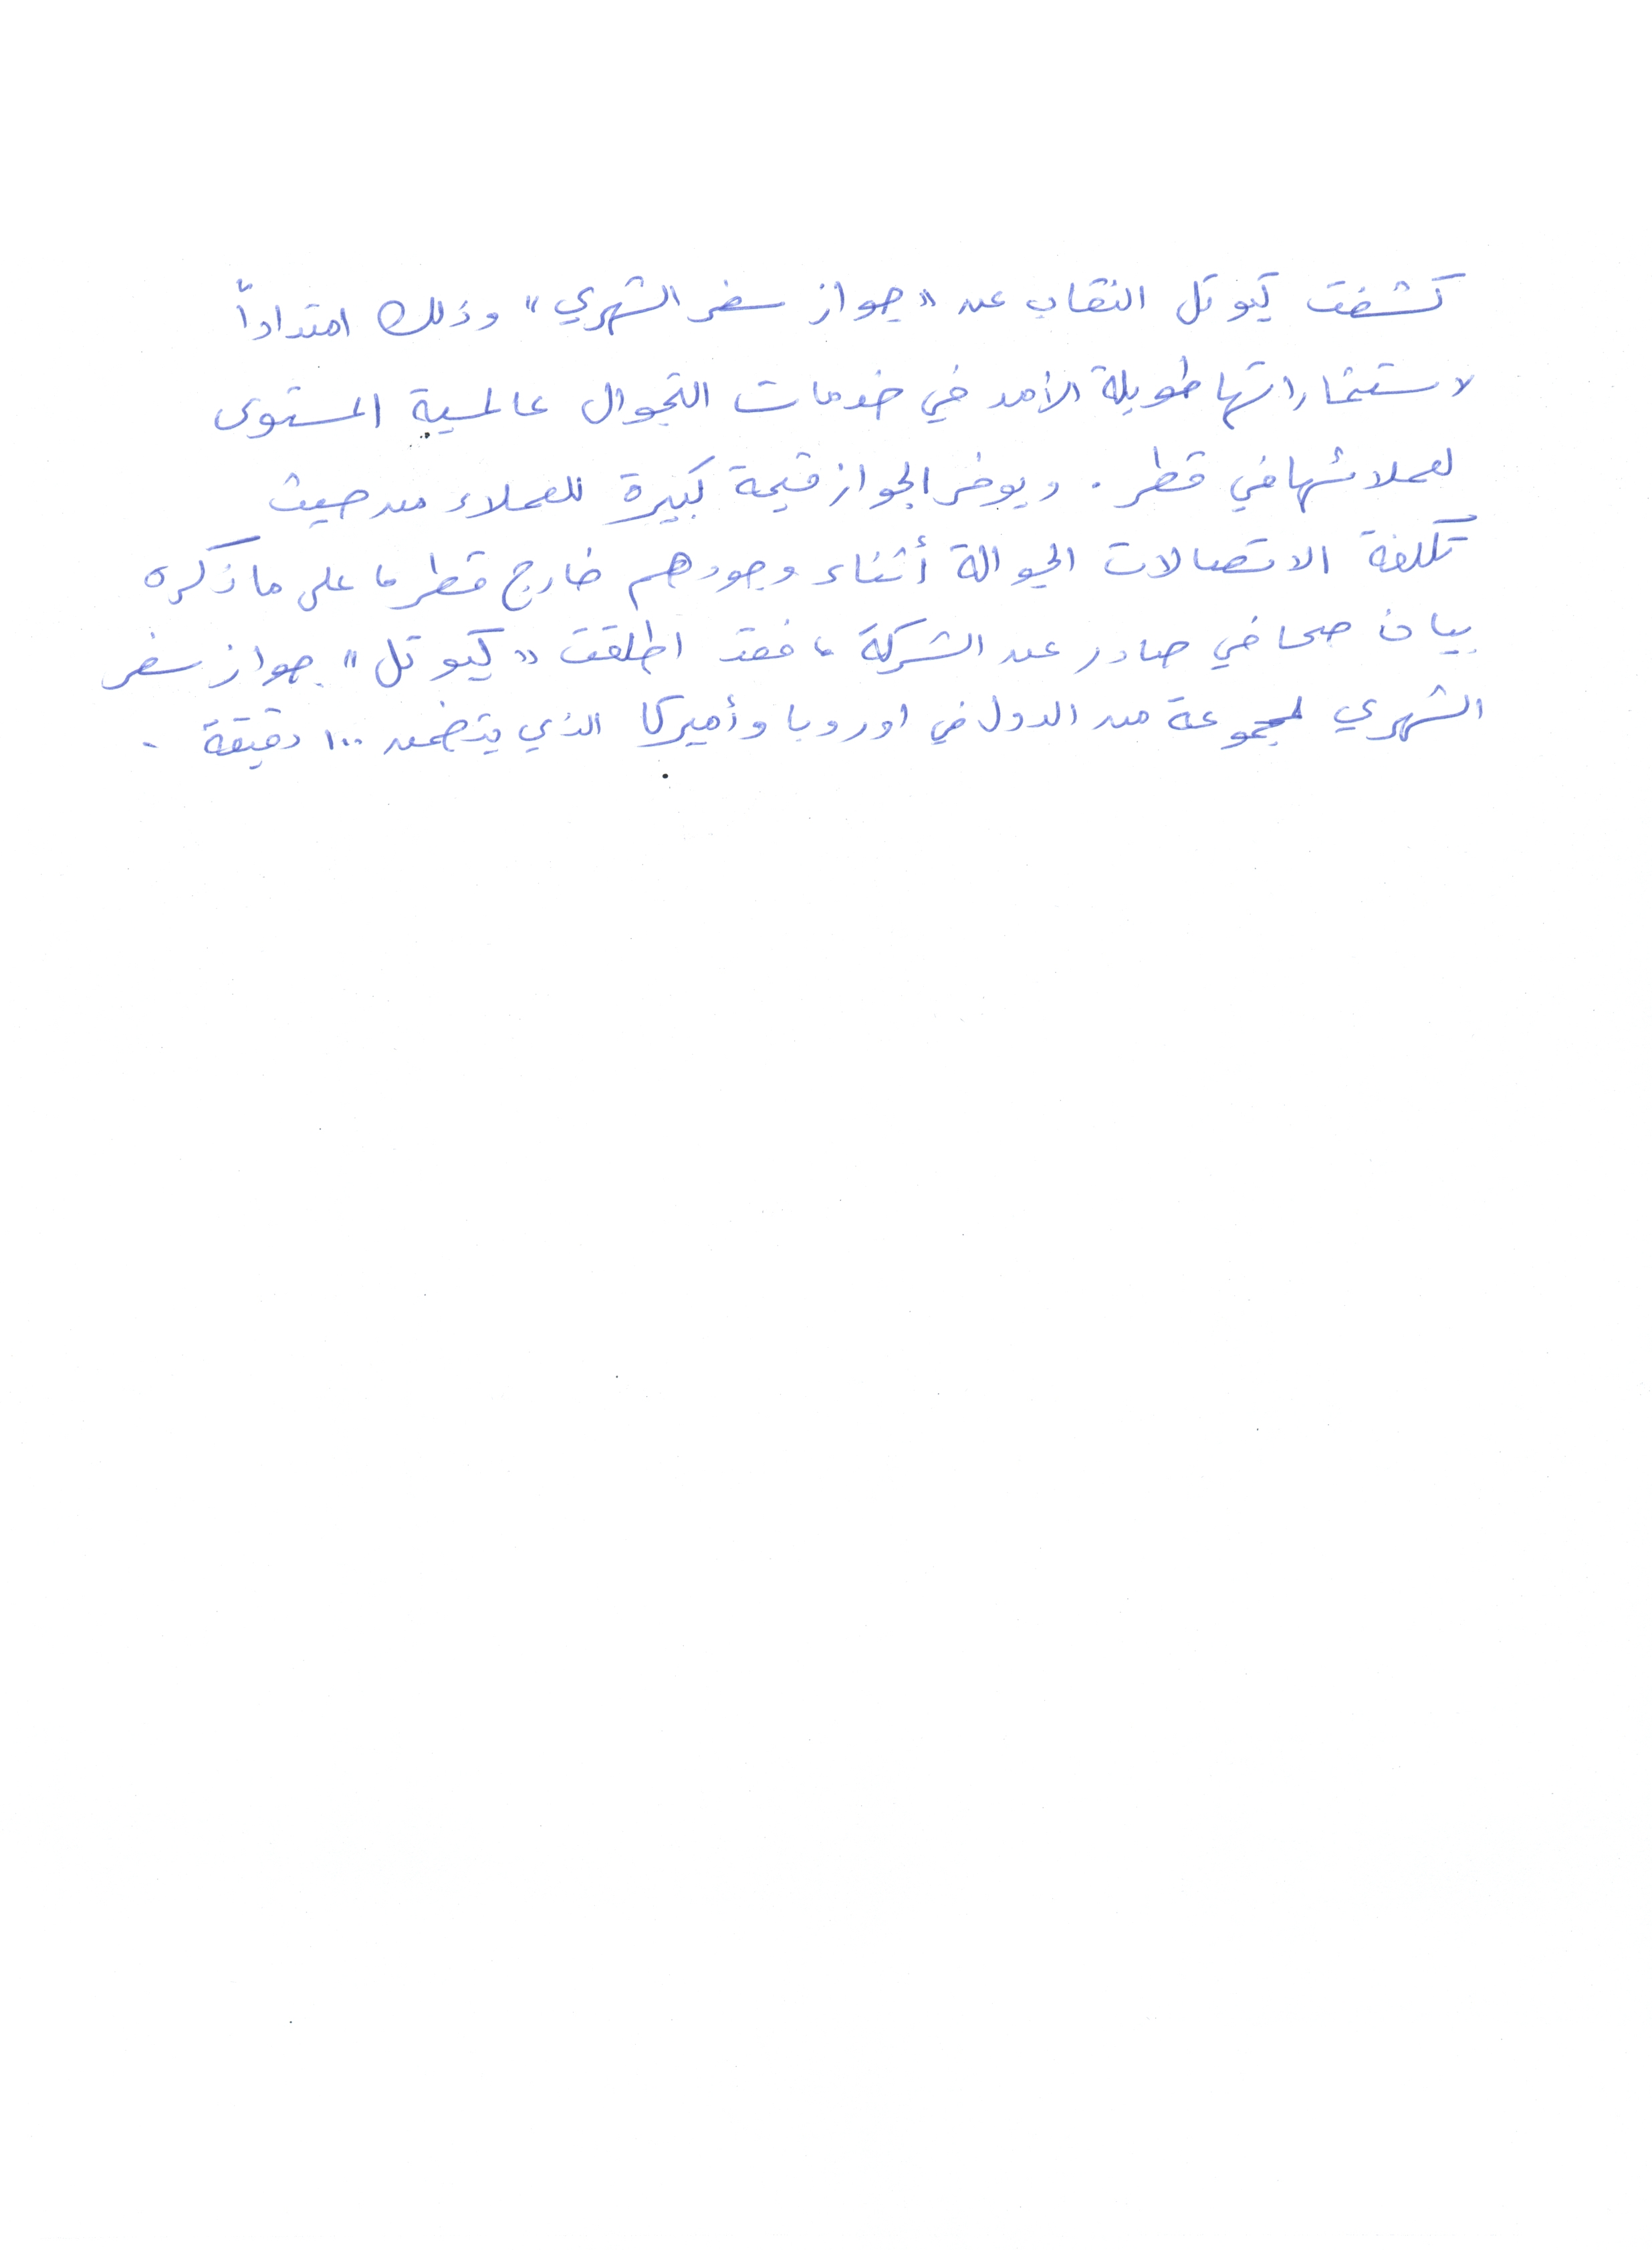 كشفت كيوتل النقاب عن «جواز سفر الشهري» وذلك امتداداً
لاستثماراتها طويلة الأمد في خدمات التجوال عالمية المستوى
لعملائها في قطر. ويوفر الجواز قيمة كبيرة للعملاء من حيث
تكلفة الاتصالات الجوالة أثناء وجودهم خارج قطر، على ما ذكره
بيان صحافي صادر عن الشركة، فقد اطلقت «كيوتل» جواز سفر
الشهري لمجموعة من الدول في اوروبا وأميركا الذي يتضمن ١٠٠ دقيقة.